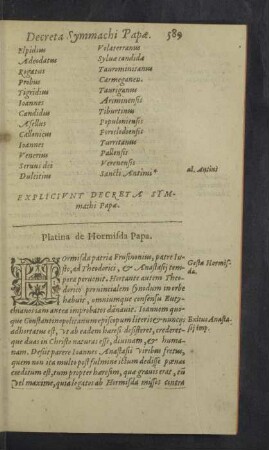 Decreta Symmachi Papæ. 589
Elpidius Volaterranus
Adeodatus Sylua candida
Rogatus Tauromnitanus
Probus Carmeganen.
Tigridius Taurigunus
Ioannes Ariminensis
Candidus Tiburtinus
Asellus Populoniensis
Callonicus Feretledi
Ioannes Turritanus
Venerius Pallensis
Seruus dei Verenensis
Dulcitius Sancti Antimi* al. Antini
EXPLICIVNT DECRETA SYM-
machi Papæ.
Platina de Hormisda Papa.
HOrmisda patria Frusinonius, patre Iu-
sto, ad Theodorici, & Anastasij tem-
pora peruenit. Hortante autem Theo-
dorico prouincialem synodum in vrbe
habuit, omniumque consensu Euty-
chianorum antea improbatos dānauit. Ioannem quo-
que Constantinopolitanum episcopum literis & nunciis
adhortatus est, vt ab eadem hæresi desisteret, crederet-
que duas in Christo naturas esse, diuinam, & huma-
nam. Desijt parere Ioannes Anastasij viribus fretus,
quem non ita multo post fulmine ictum dedisse pœnas
creditum est, tum propter hæresim, qua grauis erat, tū
vel maxime, quia legatos ab Hormisda missos contra
Gesta Hormis-
dæ.
Exitus Anasta-
sij Imp.